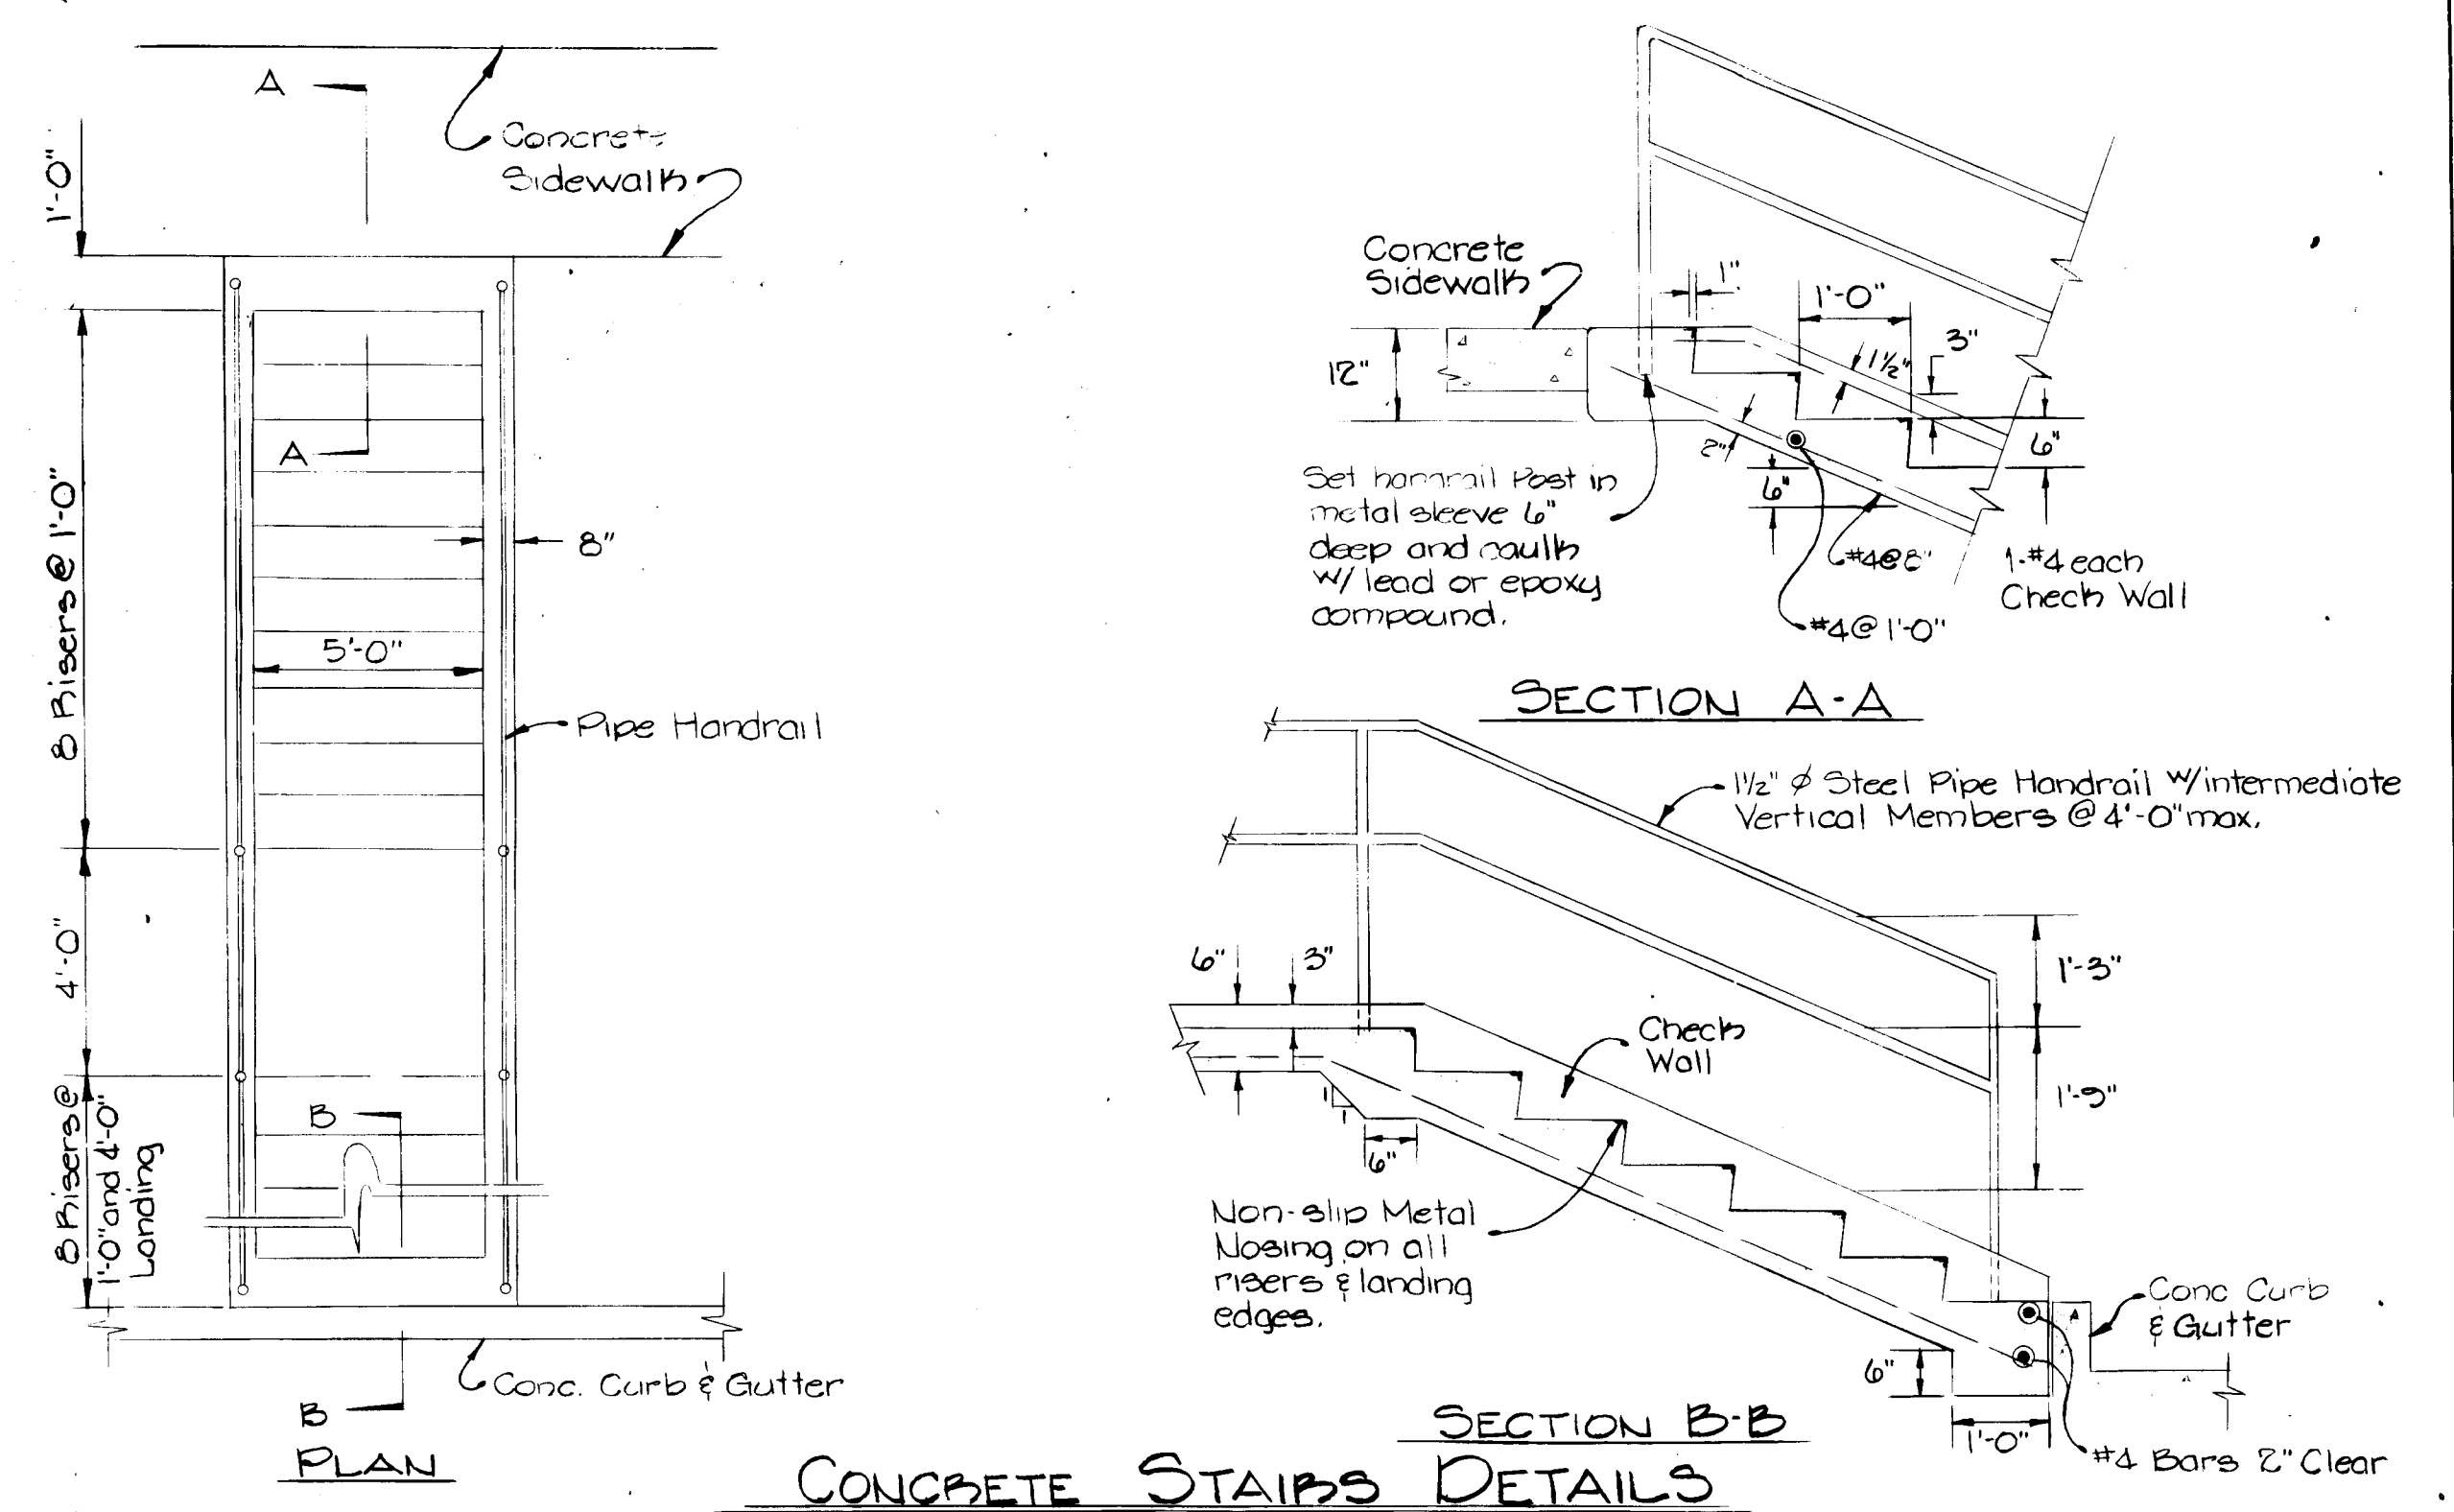 A
Concrete
Sidewalk
1'-0"
A
8"
8 Risers @ 1'-0"
5'-0"
Pipe Handrail
4'-0"
B
8 Risers @
1'-0" and 4'-0"
Landing
Conc. Curb & Gutter
B
PLAN
Concrete
Sidewalk
1"
1'-0"
3"
1½"
12"
2"
6"
6"
Set handrail Post in
metal sleeve 6"
deep and caulk
w/ lead or epoxy
compound.
#4@8"
#4@1'-0"
1-#4 each
Check Wall
SECTION A-A
1½" ø Steel Pipe Handrail w/intermediate
Vertical Members @ 4'-0" max.
6"
3"
1'-3"
Check
Wall
1'-9"
1
1
6"
Non-slip Metal
Nosing on all
risers & landing
edges.
Conc Curb
& Gutter
6"
1'-0"
#4 Bars 2" Clear
SECTION B-B
CONCRETE STAIRS DETAILS